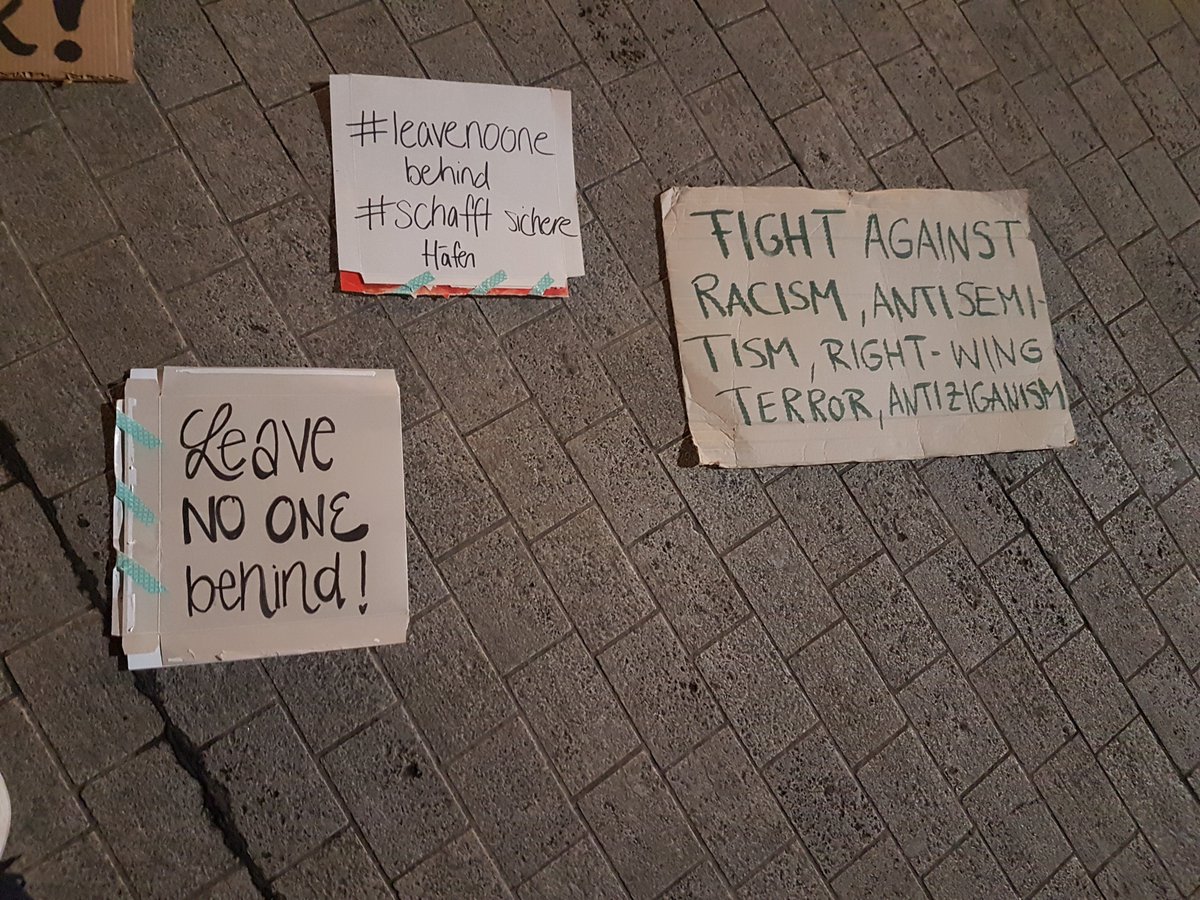 !
#leavenoone
behind
#schafft sichere
Häfen
FIGHT AGAINST
RACISM, ANTISEMI-
TISM, RIGHT-WING
TERROR, ANTIZIGANISM
Leave
NO ONE
behind!